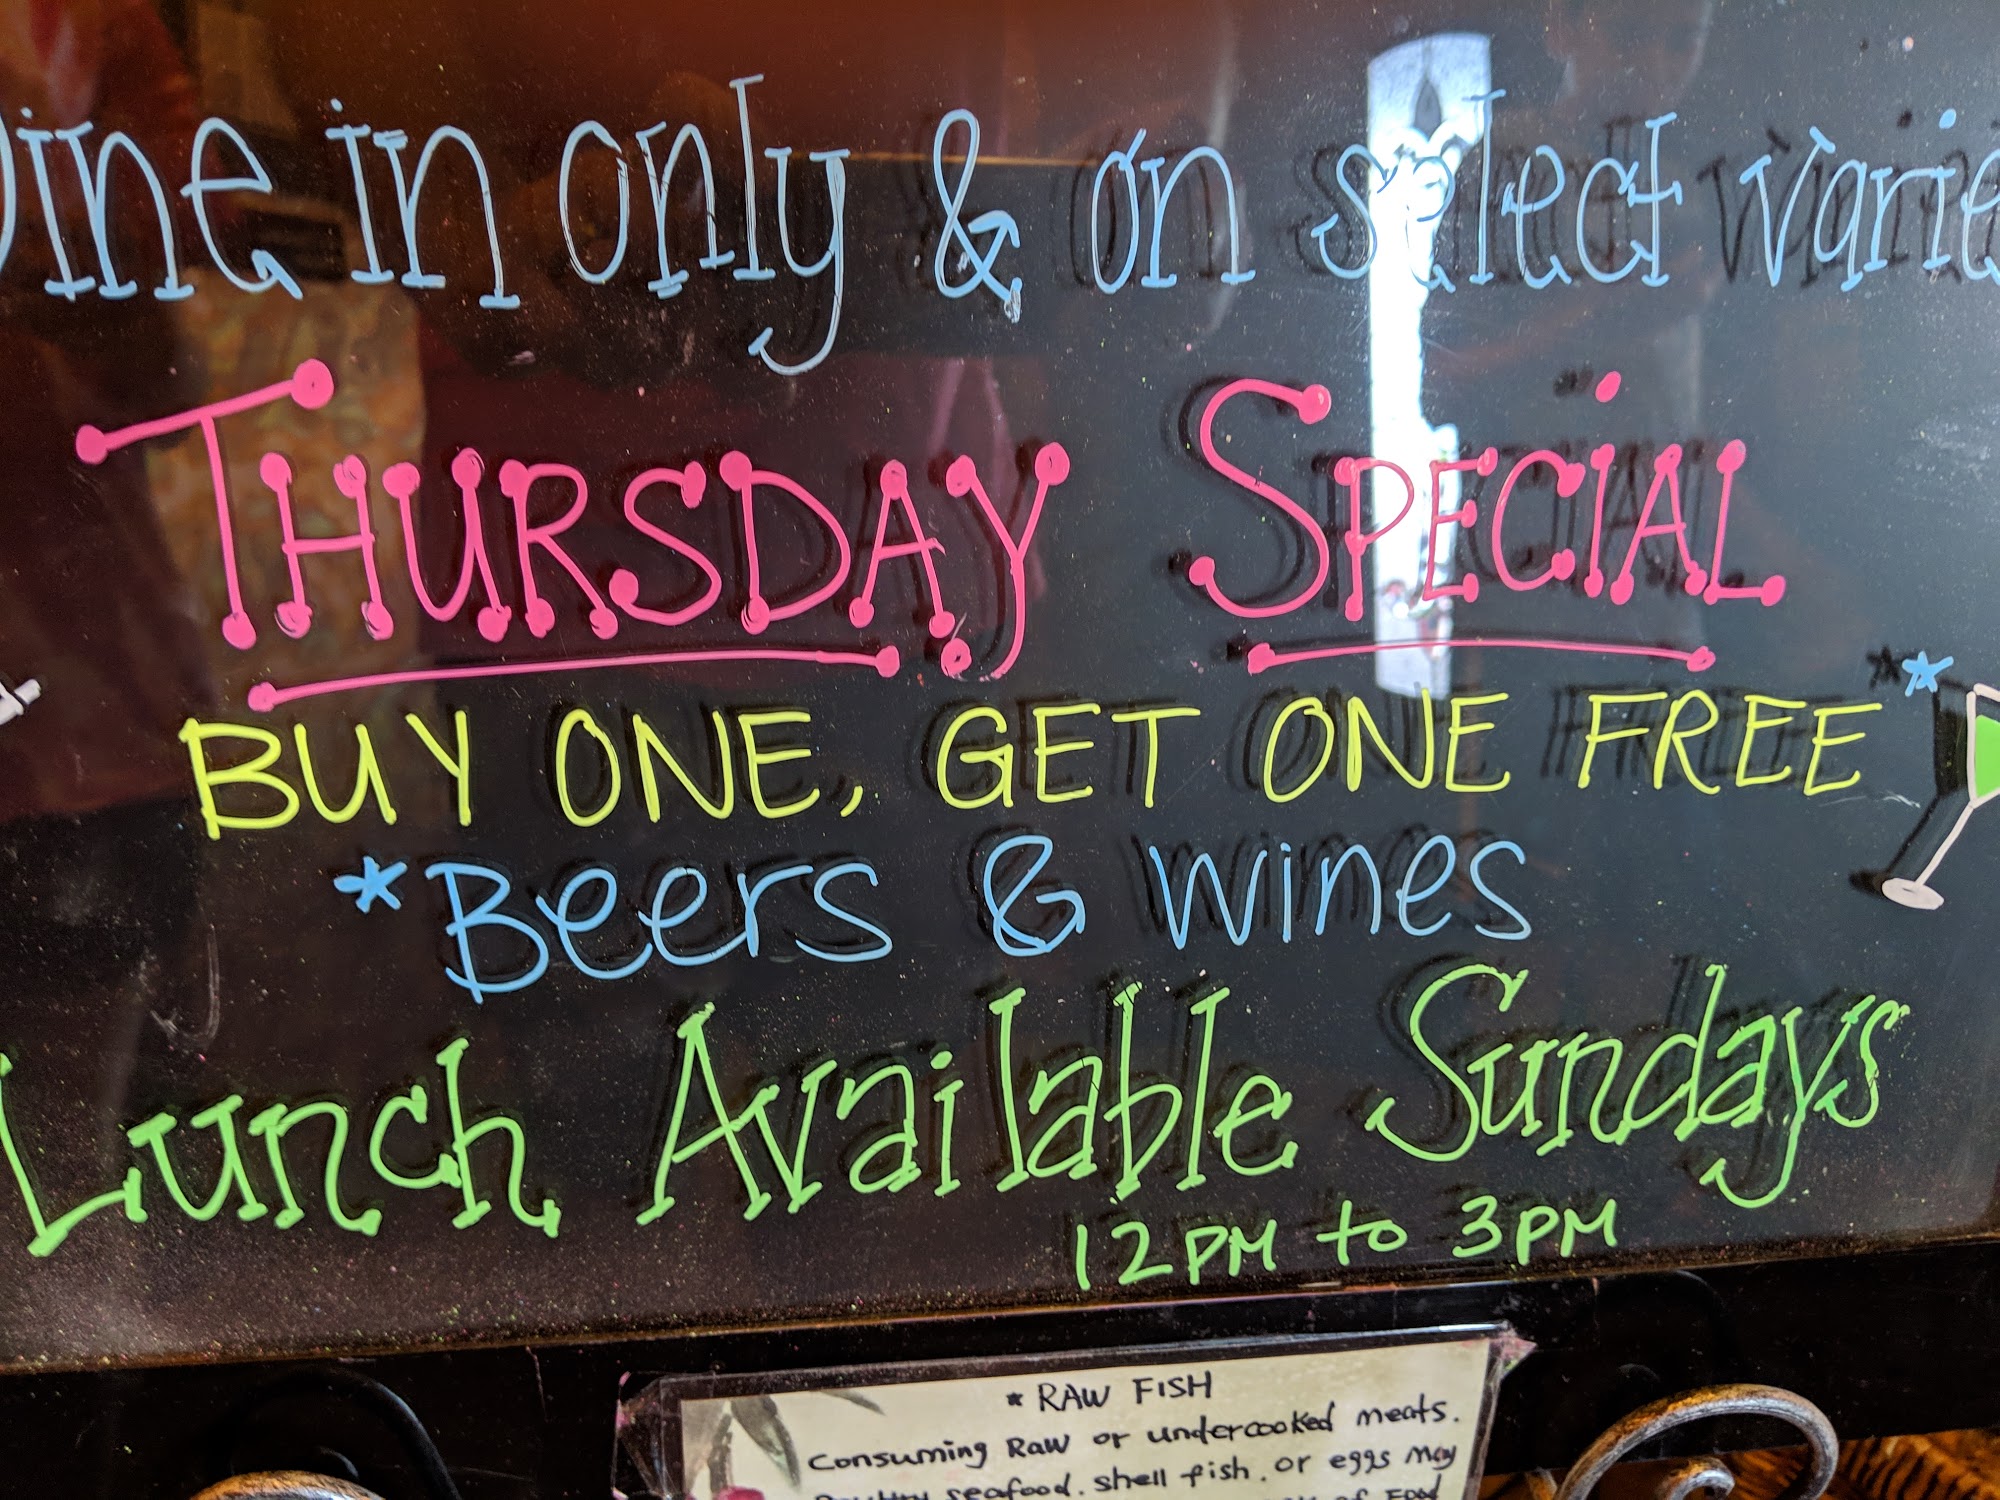 Dine in only & on select varie
THURSDAY SPECiAL
BUY ONE, GET ONE FREE*
*Beers & wines
Lunch Available Sundays
12PM to 3PM
* RAW FISH
Consuming Raw or undercooked meats.
seafood. shell fish. or eggs may
of Food